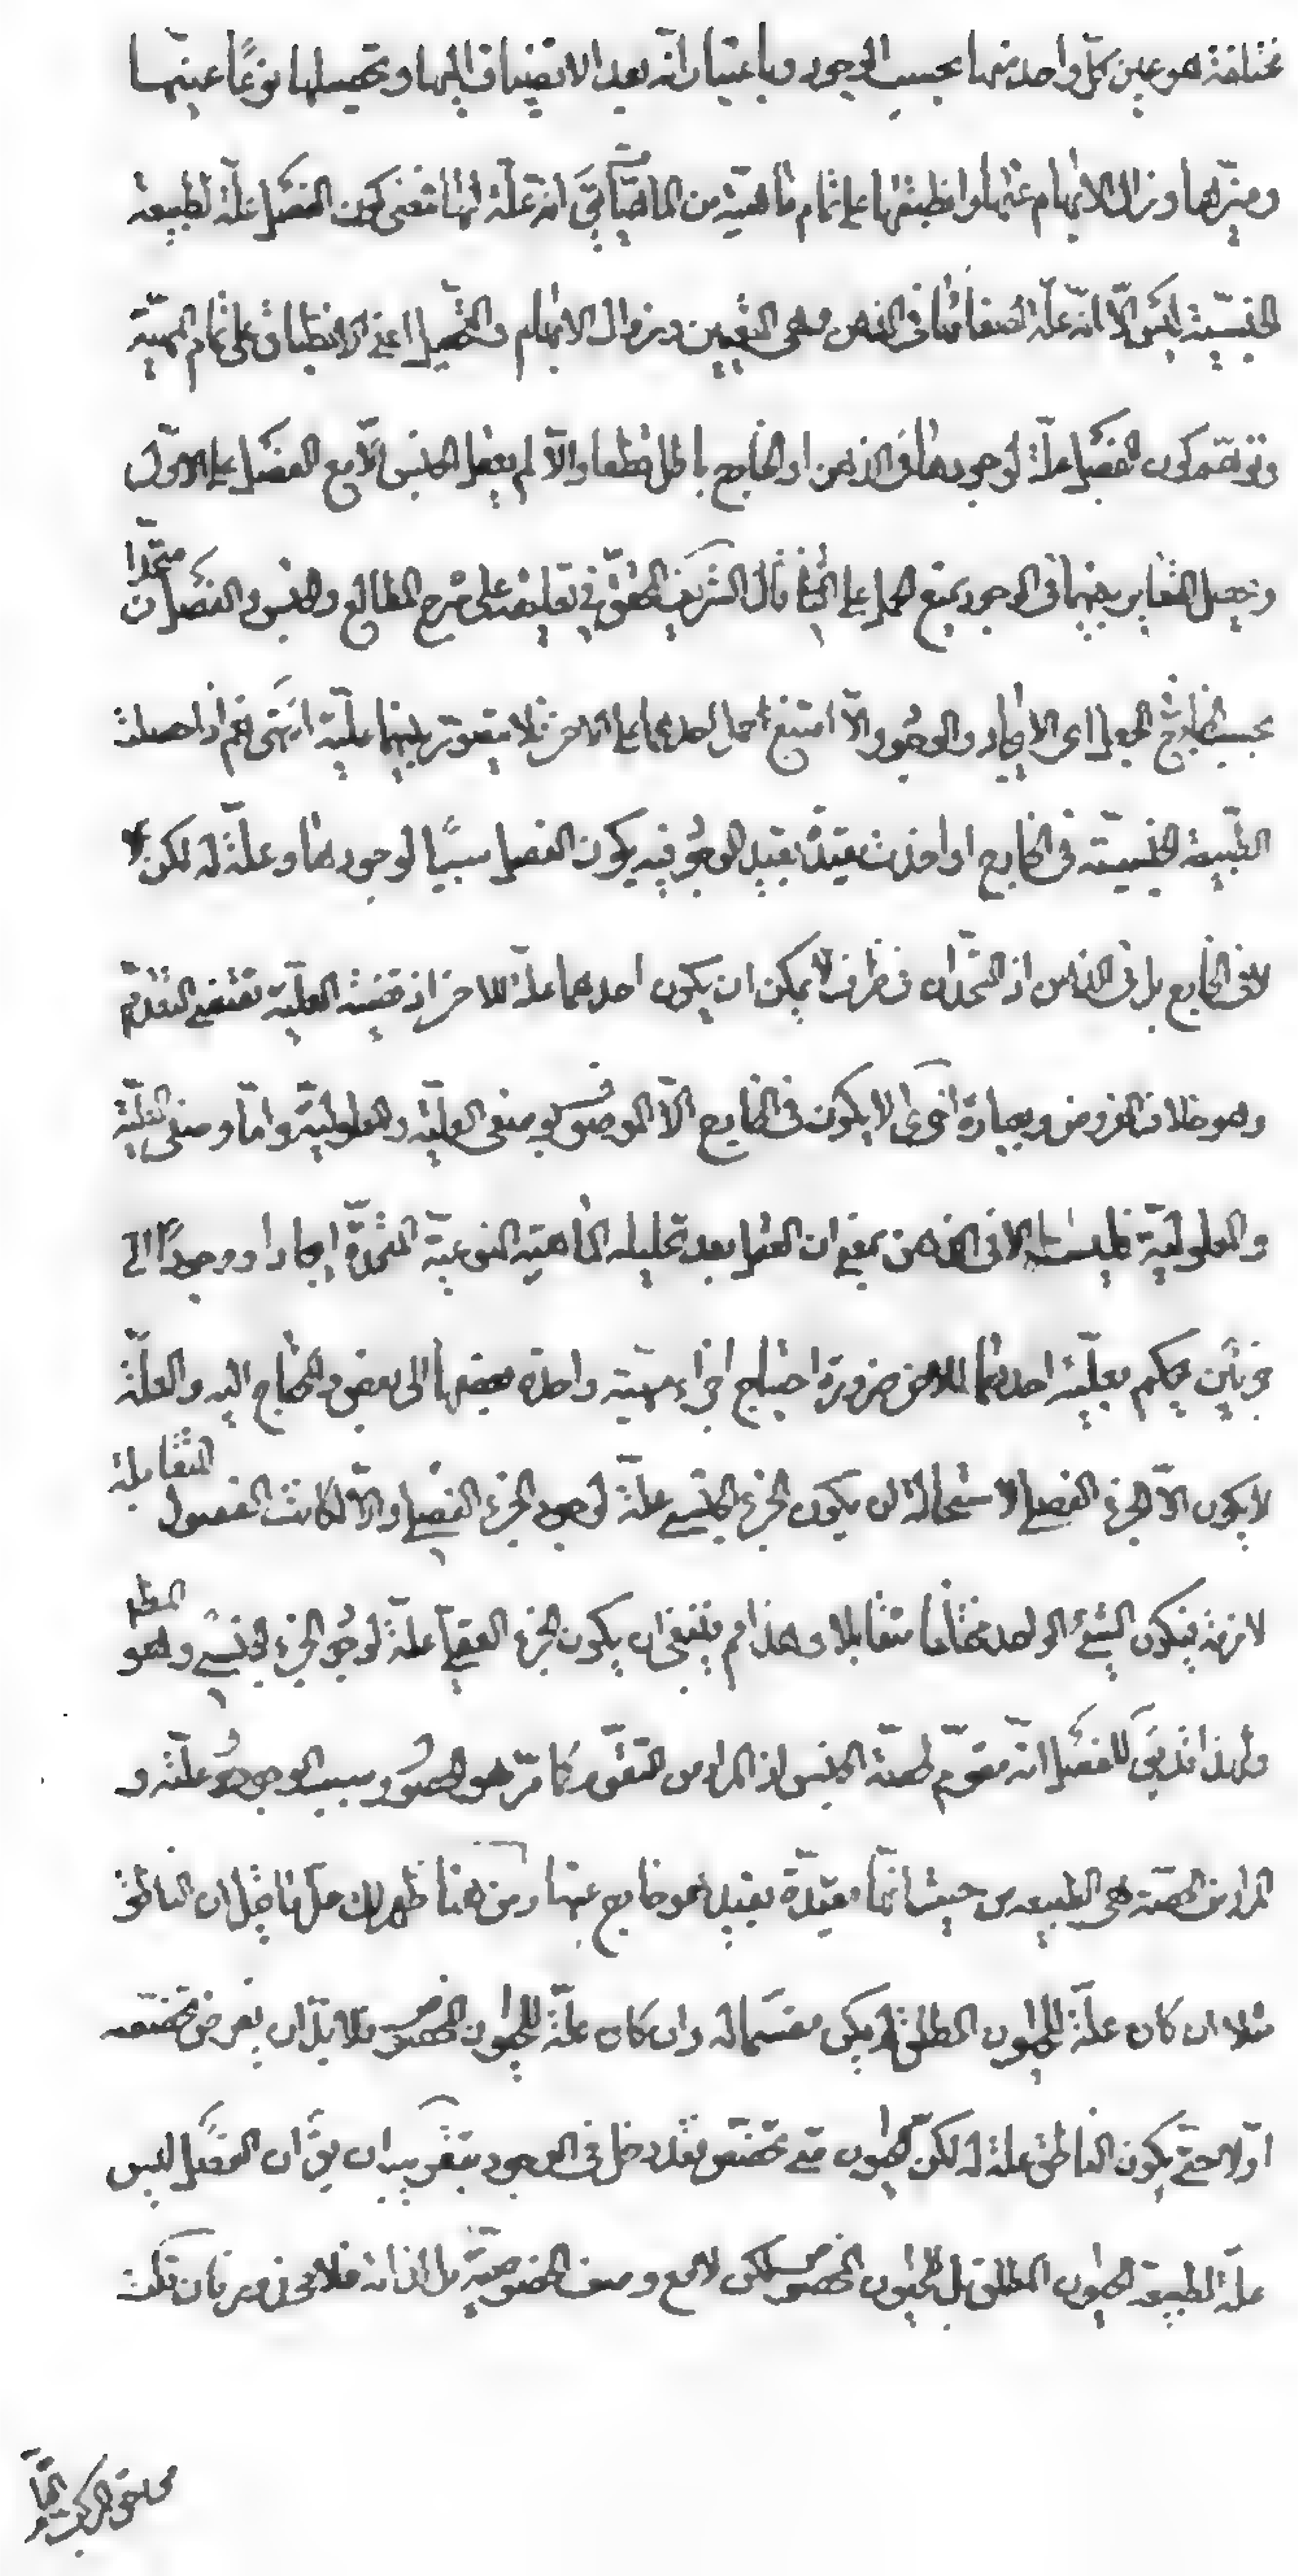 مختلفة هو عين كلّ واحد منها بحسب الوجود وباعتبار انّه بعد الانضياف اليها وتحصيلها نوعًا عينها
وميّزها وزال الابهام عنها وانطبقها على تمام ماهيّة من الماهيّات يقَ انه علّة لها فمعنى كون الفصل علّة لطبيعة
الجنسيّة ليس الّا انّه علّة لصفاتها فى الذهن وهى التعيين وزوال الابهام والتحصيل اعنى الانطباق على تمام المهيّة
وتوهّم كون الفصل علّة لوجودها فى الذهن او الخارج باطل قطعا والّا لم يعقل الجنس الّا مع الفصل على الاوّل
وتحصل التغاير بينهما فى الوجود يمتنع الحمل على الثانى قال الشريف المحقّق فى تعليقته على شرح المطالع والجنس والفصل متّحدان
بحسب الخارج الجعل اى الايجاد والوجود والّا امتنع حمل احدهما على الاخر فلا يتصوّر بينهما علّية انتهى نعم اذا حصلت
الطّبيعة الجنسيّة فى الخارج او اخذت مقيّدة بقيد الوجود فيه يكون الفصل سببًا لوجودها وعلّة له لكن لا
لا فى الخارج بل فى الذهن اذ المتّحدان فى ظرف لا يمكن ان يكون احدهما علّة للاخر اذ قضيّة العلّية تقتضى التقدّم
وهو خلاف المفروض وبعبارة اخرى لا يكون فى الخارج الّا الموصوف بوصفى العلّية والمعلوليّة وامّا وصفى العلّية
والمعلوليّة فليستا الا فى الذهن بمعنى ان العقل بعد تحليله الماهيّة النوعيّة المتّحدة ايجادا ووجودًا الى
جزئين يحكم بعلّية احدهما للاخر ضرورة احتياج اجزاء مهيّة واحدة بعضها الى بعض والمحتاج اليه والعلّة
لا يكون الّا الجزء الفصلى لاستحالة ان يكون الجزء الجنسى علّة لوجود الجزء الفصلى والّا لكانت الفصول المتقابلة
لازمة فيكون الشئ الواحد مختلفا متقابلا وهذا مم فينبغى ان يكون الجزء الفصلى علّة لوجود الجزء الجنسى وهو المطلو
ولهذا قد يقَ للفصل انّه مقوّم لحصّة الجنس اذ المراد من التقوّم كما مرّ هو الحصول وسبب الوجود وعلّته و
المراد من الحصّة هى الطبيعه من حيث انّها مقيّدة بقيد هو خارج عنها ومن هنا ظهر لك حلّ ما قيل ان الناطق
مثلا ان كان علّة للحيوان المطلق لم يكن مقسّما له وان كان علّة للحيوان المخصوص فلا بدّ ان يفرض تخصّصه
اوّلا حتّى يكون الناطق علّة له لكنّ الحيوان متى تخصّص فقد دخل فى الوجود بتقريب ان يقَ ان الفصل ليس
علّة لطبيعة الحيوان المطلق بل للحيوان المخصوص لكن لا مع وصف الخصوصيّة بل لذاته فلا محذور فان تلك